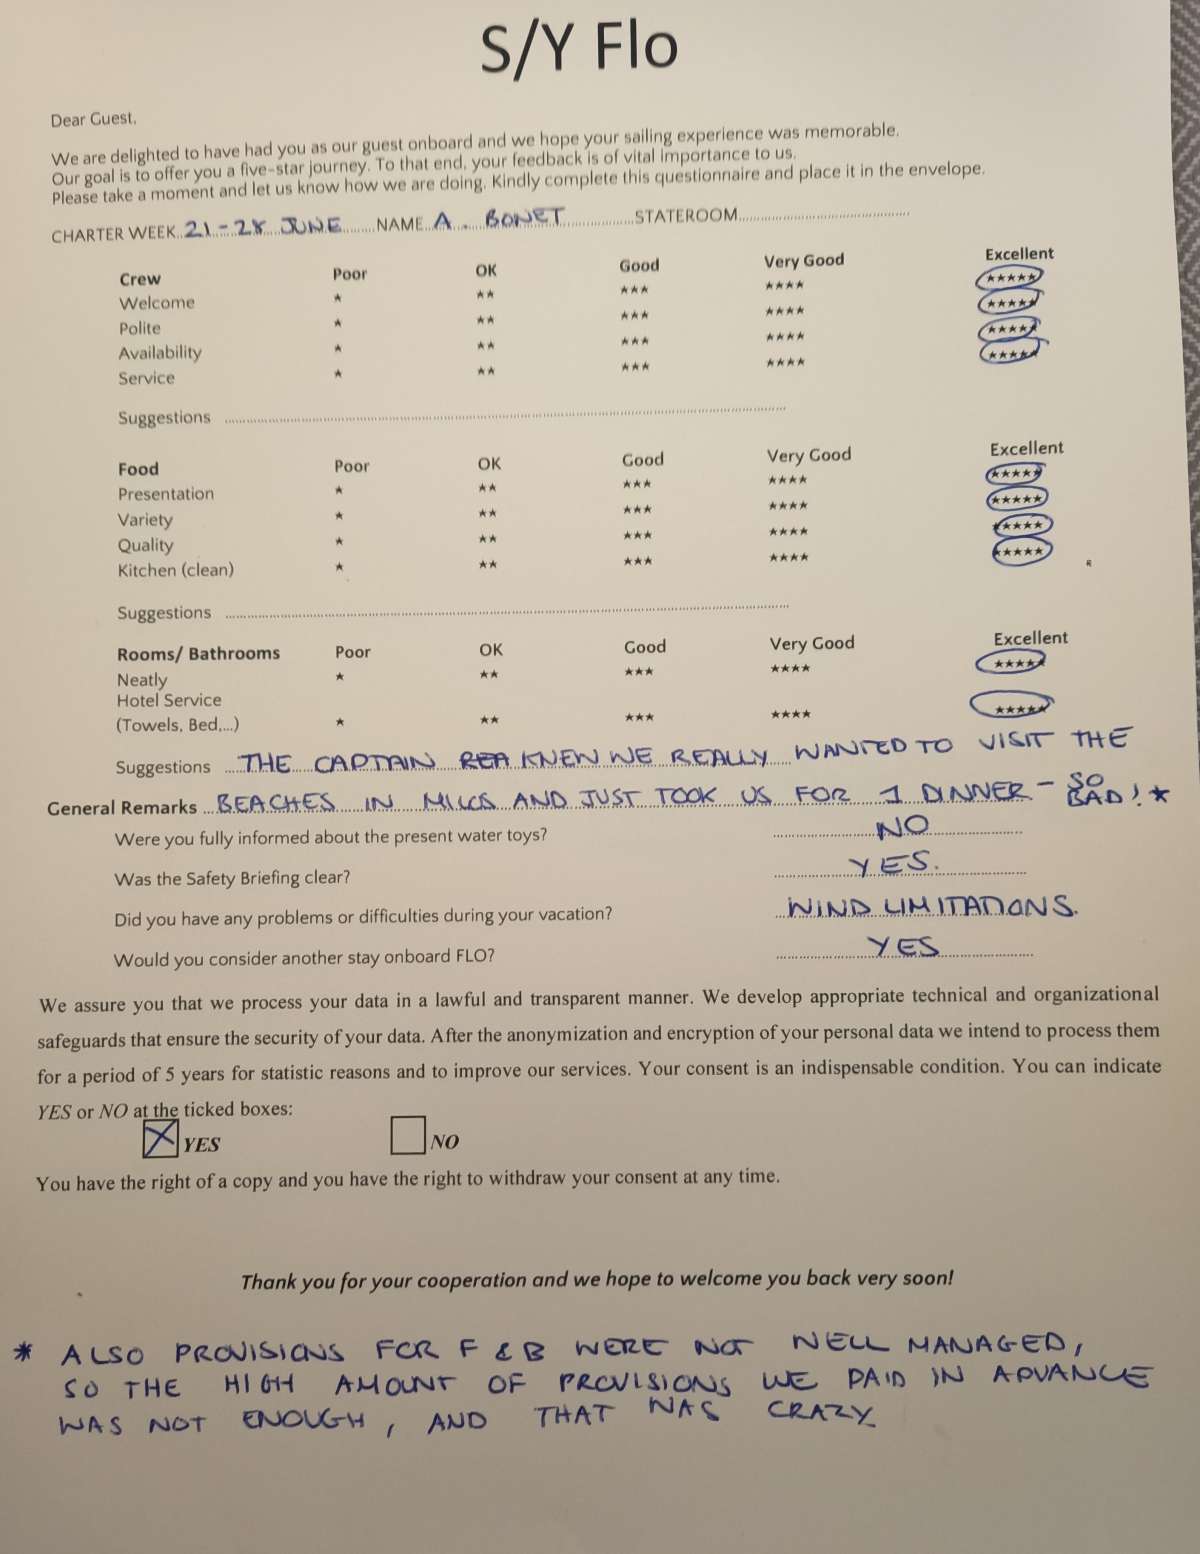 S/Y Flo
Dear Guest,
We are delighted to have had you as our guest onboard and we hope your sailing experience was memorable.
Our goal is to offer you a five-star journey. To that end, your feedback is of vital importance to us.
Please take a moment and let us know how we are doing. Kindly complete this questionnaire and place it in the envelope.
CHARTER WEEK 21-28 JUNE NAME A. BONET STATEROOM
Crew Poor OK Good Very Good Excellent
Welcome ★ ★★ ★★★ ★★★★ ★★★★★
Polite ★ ★★ ★★★ ★★★★ ★★★★★
Availability ★ ★★ ★★★ ★★★★ ★★★★★
Service ★ ★★ ★★★ ★★★★ ★★★★★
Suggestions
Food Poor OK Good Very Good Excellent
Presentation ★ ★★ ★★★ ★★★★ ★★★★★
Variety ★ ★★ ★★★ ★★★★ ★★★★★
Quality ★ ★★ ★★★ ★★★★ ★★★★★
Kitchen (clean) ★ ★★ ★★★ ★★★★ ★★★★★
Suggestions
Rooms/ Bathrooms Poor OK Good Very Good Excellent
Neatly ★ ★★ ★★★ ★★★★ ★★★★★
Hotel Service
(Towels, Bed,...) ★ ★★ ★★★ ★★★★ ★★★★★
Suggestions THE CAPTAIN KNEW WE REALLY WANTED TO VISIT THE
General Remarks BEACHES IN MILOS AND JUST TOOK US FOR 1 DINNER - SO BAD! *
Were you fully informed about the present water toys? NO
Was the Safety Briefing clear? YES.
Did you have any problems or difficulties during your vacation? WIND LIMITATIONS.
Would you consider another stay onboard FLO? YES
We assure you that we process your data in a lawful and transparent manner. We develop appropriate technical and organizational
safeguards that ensure the security of your data. After the anonymization and encryption of your personal data we intend to process them
for a period of 5 years for statistic reasons and to improve our services. Your consent is an indispensable condition. You can indicate
YES or NO at the ticked boxes:
YES NO
You have the right of a copy and you have the right to withdraw your consent at any time.
Thank you for your cooperation and we hope to welcome you back very soon!
* ALSO PROVISIONS FOR F & B WERE NOT WELL MANAGED,
SO THE HIGH AMOUNT OF PROVISIONS WE PAID IN ADVANCE
WAS NOT ENOUGH, AND THAT WAS CRAZY